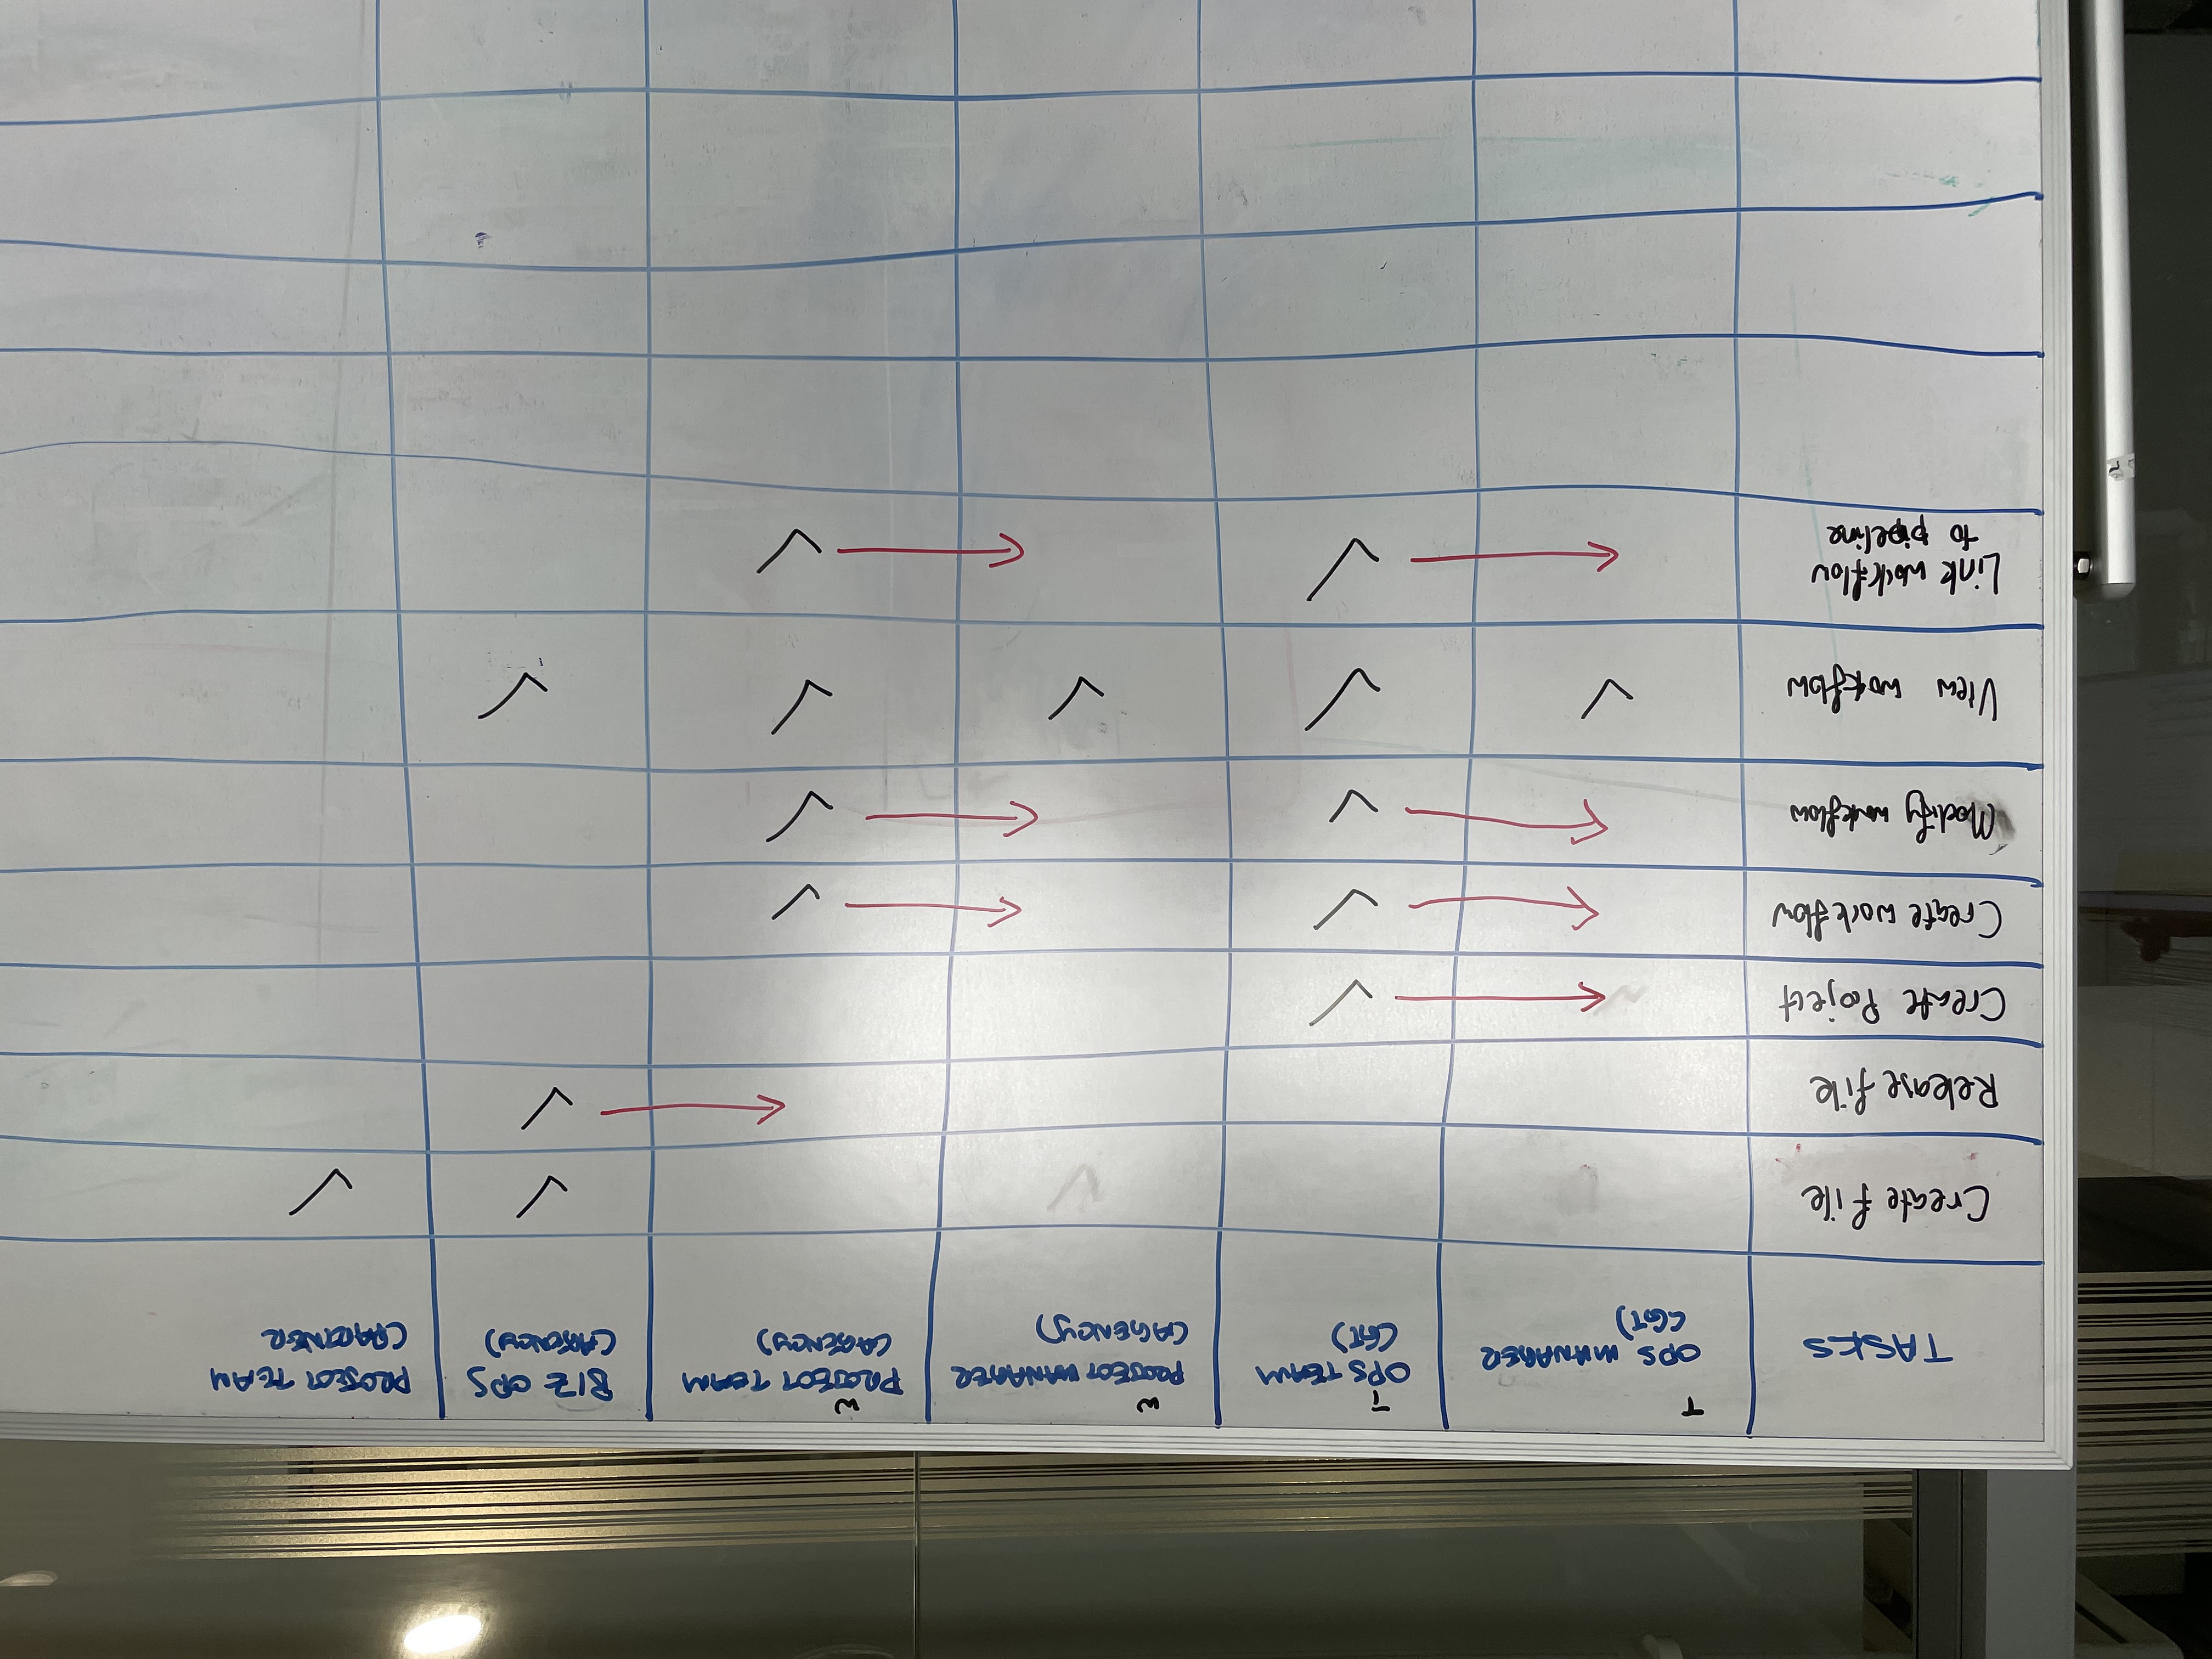 T T W W
TASKS
OPS MANAGER
(GT)
OPS TEAM
(GT)
PROJECT MANAGER
(AGENCY)
PROJECT TEAM
(AGENCY)
BIZ OPS
(AGENCY)
PROJECT TEAM
(PARTNER
Create file ✓ ✓
Release file ← ✓
Create Project ← ✓
Create workflow ← ✓ ← ✓
Modify workflow ← ✓ ← ✓
View workflow ✓ ✓ ✓ ✓ ✓
Link workflow ← ✓ ← ✓
to pipeline